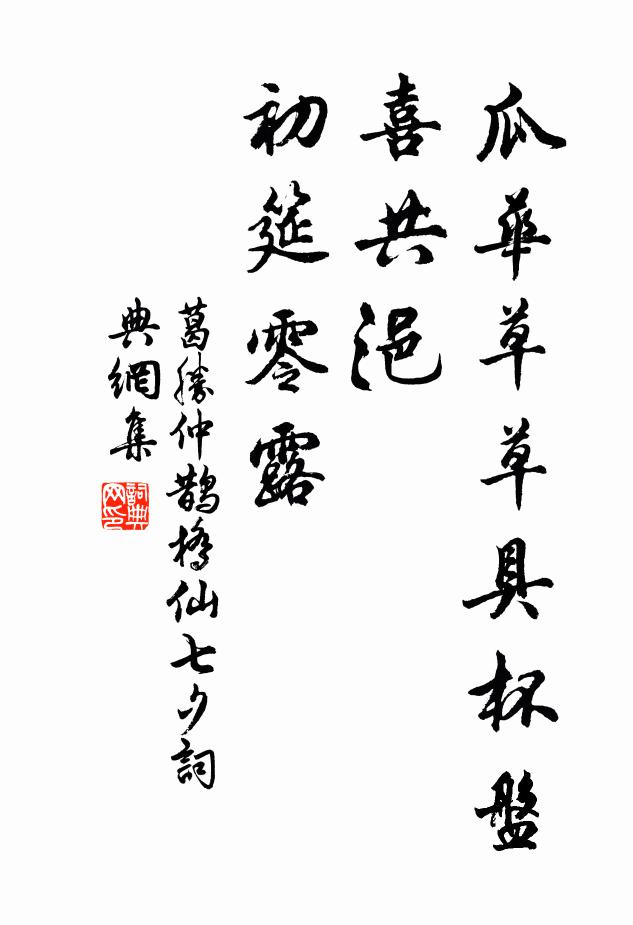 瓜華草草具杯盤
喜共浥
初筵零露
葛勝仲鵲橋仙七夕詞
典網集
詞典网印